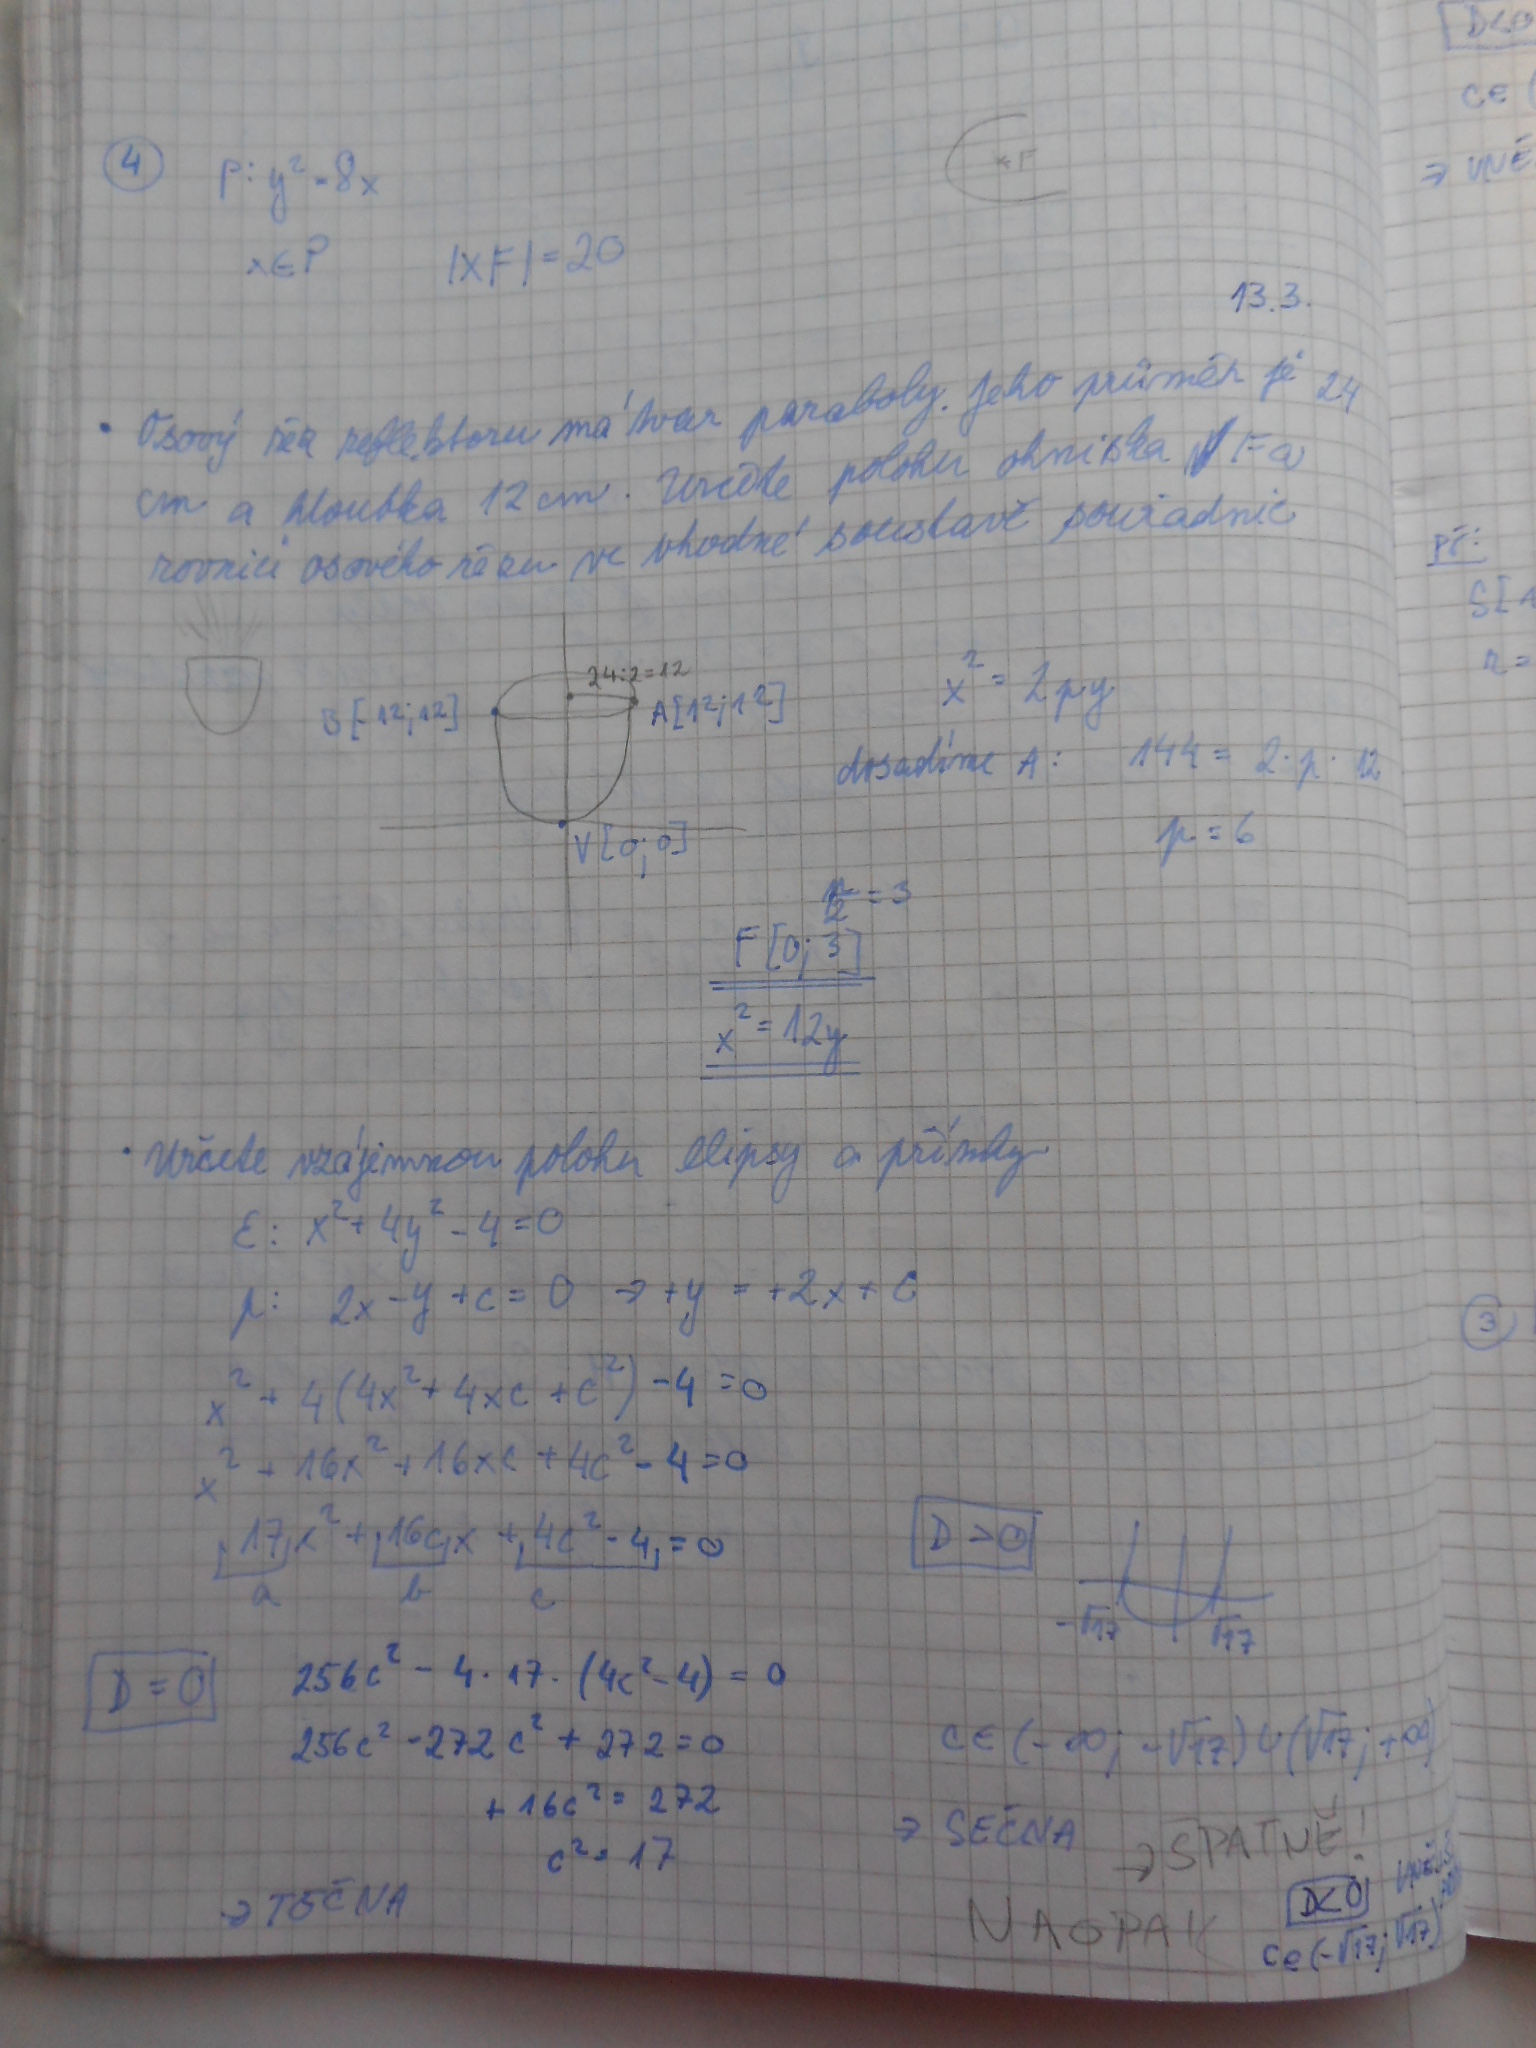 4 P: y² = 8x
x∈P |XF| = 20
*F
13.3.
• Osový řez reflektoru má tvar paraboly. Jeho průměr je 24
cm a hloubka 12 cm. Určete polohu ohniska F a
rovnici osového řezu ve vhodné soustavě souřadnic
24:2=12
B[-12;12] A[12;12]
V[0;0]
x² = 2py
dosadíme A: 144 = 2·p·12
p = 6
p/2 = 3
F[0;3]
x² = 12y
• Určete vzájemnou polohu elipsy a přímky
E: x² + 4y² - 4 = 0
p: 2x - y + c = 0 → +y = +2x + c
x² + 4(4x² + 4xc + c²) - 4 = 0
x² + 16x² + 16xc + 4c² - 4 = 0
17x² + 16cx + 4c² - 4 = 0
a b c
D = 0 256c² - 4·17·(4c² - 4) = 0
256c² - 272c² + 272 = 0
+16c² = 272
c² = 17
→ TEČNA
D > 0
-√17 √17
c∈(-∞; -√17)∪(√17; +∞)
→ SEČNA → SPATNĚ!
NAOPAK
D<0
c∈(-√17; √17)
D<0
c∈(
→ VNĚ
př:
S[
r =
3